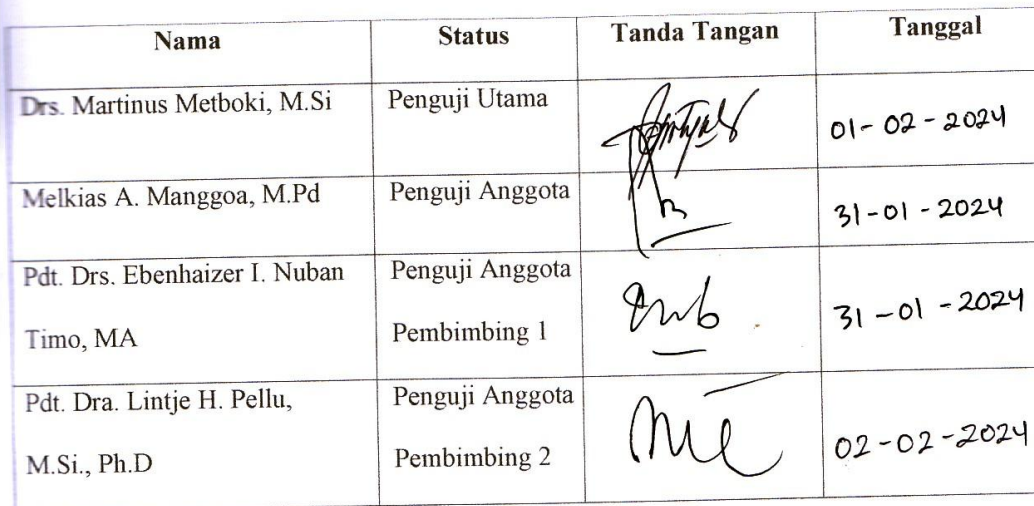 Nama Status Tanda Tangan Tanggal
Drs. Martinus Metboki, M.Si Penguji Utama 01-02-2024
Melkias A. Manggoa, M.Pd Penguji Anggota 31-01-2024
Pdt. Drs. Ebenhaizer I. Nuban Penguji Anggota
Timo, MA Pembimbing 1 31-01-2024
Pdt. Dra. Lintje H. Pellu, Penguji Anggota
M.Si., Ph.D Pembimbing 2 02-02-2024